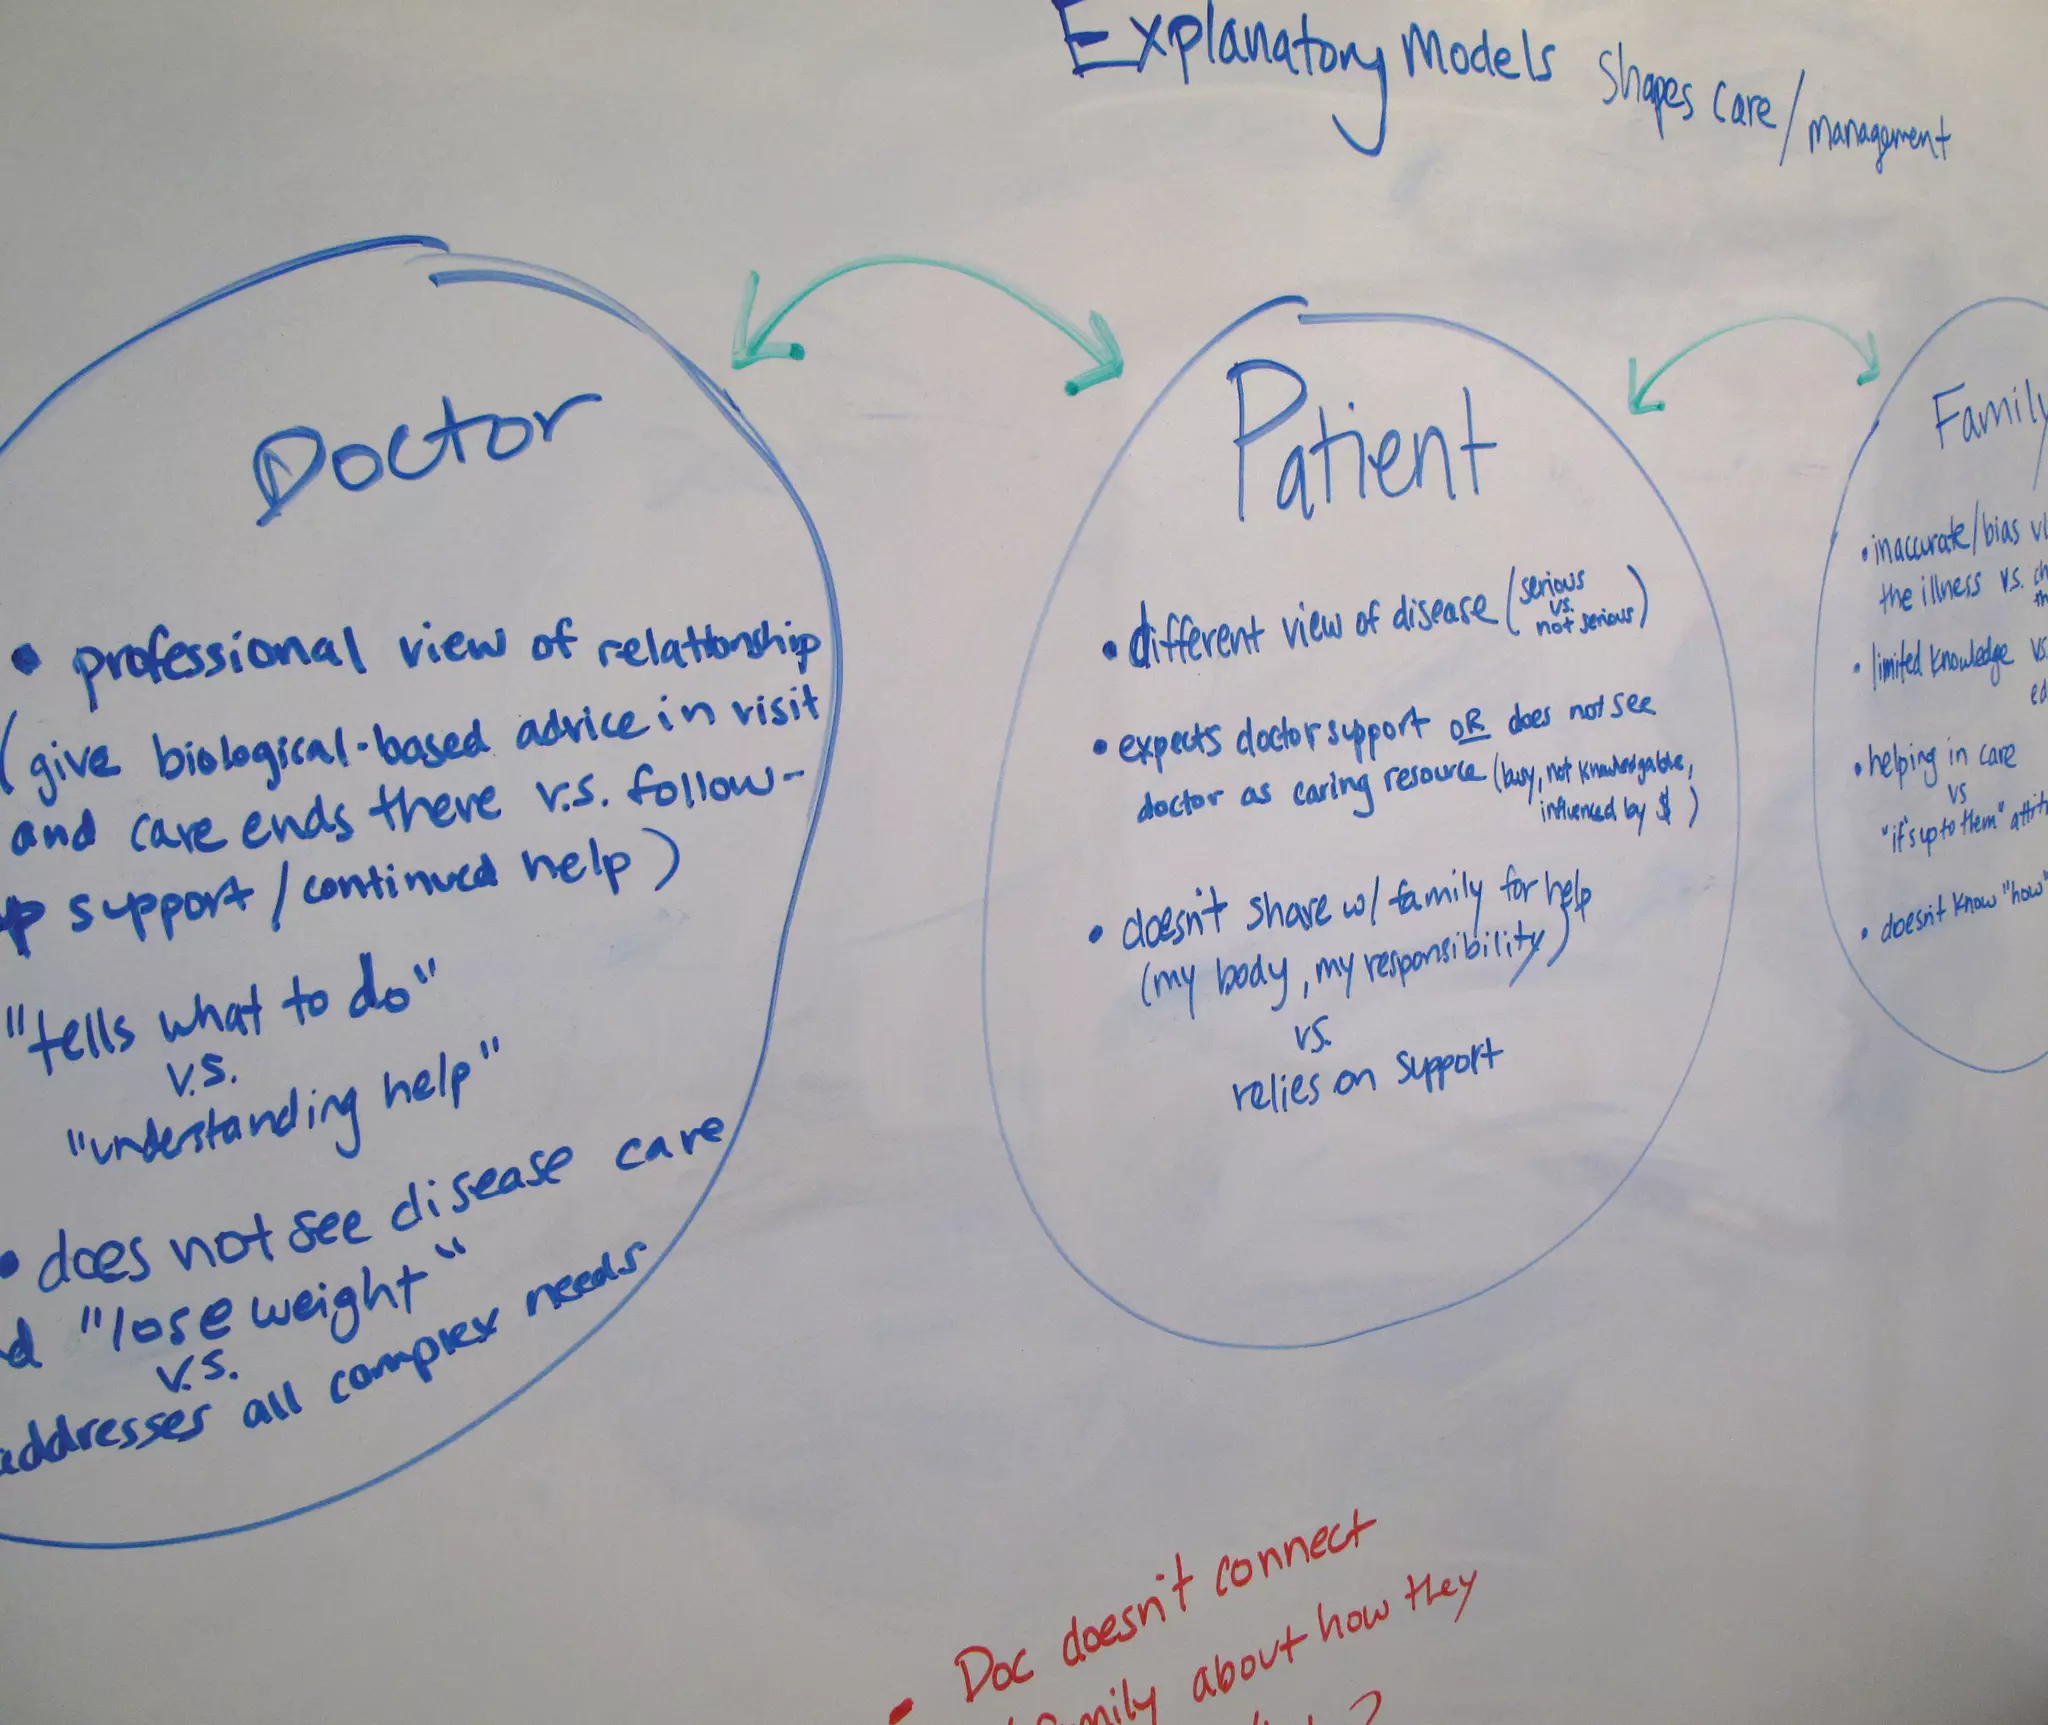 Explanatory Models shapes care/
management
Doctor
• professional view of relationship
(give biological-based advice in visit
and care ends there v.s. follow-
support/continued help)
"tells what to do"
v.s.
"understanding help"
• does not see disease care
"lose weight"
v.s.
addresses all complex needs
Patient
• different view of disease (serious
vs.
not serious)
• expects doctor support OR does not see
doctor as caring resource (busy, not knowledgable,
influenced by $)
• doesn't share w/ family for help
(my body, my responsibility)
vs.
relies on support
Family/
• inaccurate/bias
the illness vs.
• limited knowledge vs.
• helping in care
vs
"it's up to them"
• doesn't know "how"
• Doc doesn't connect
family about how they